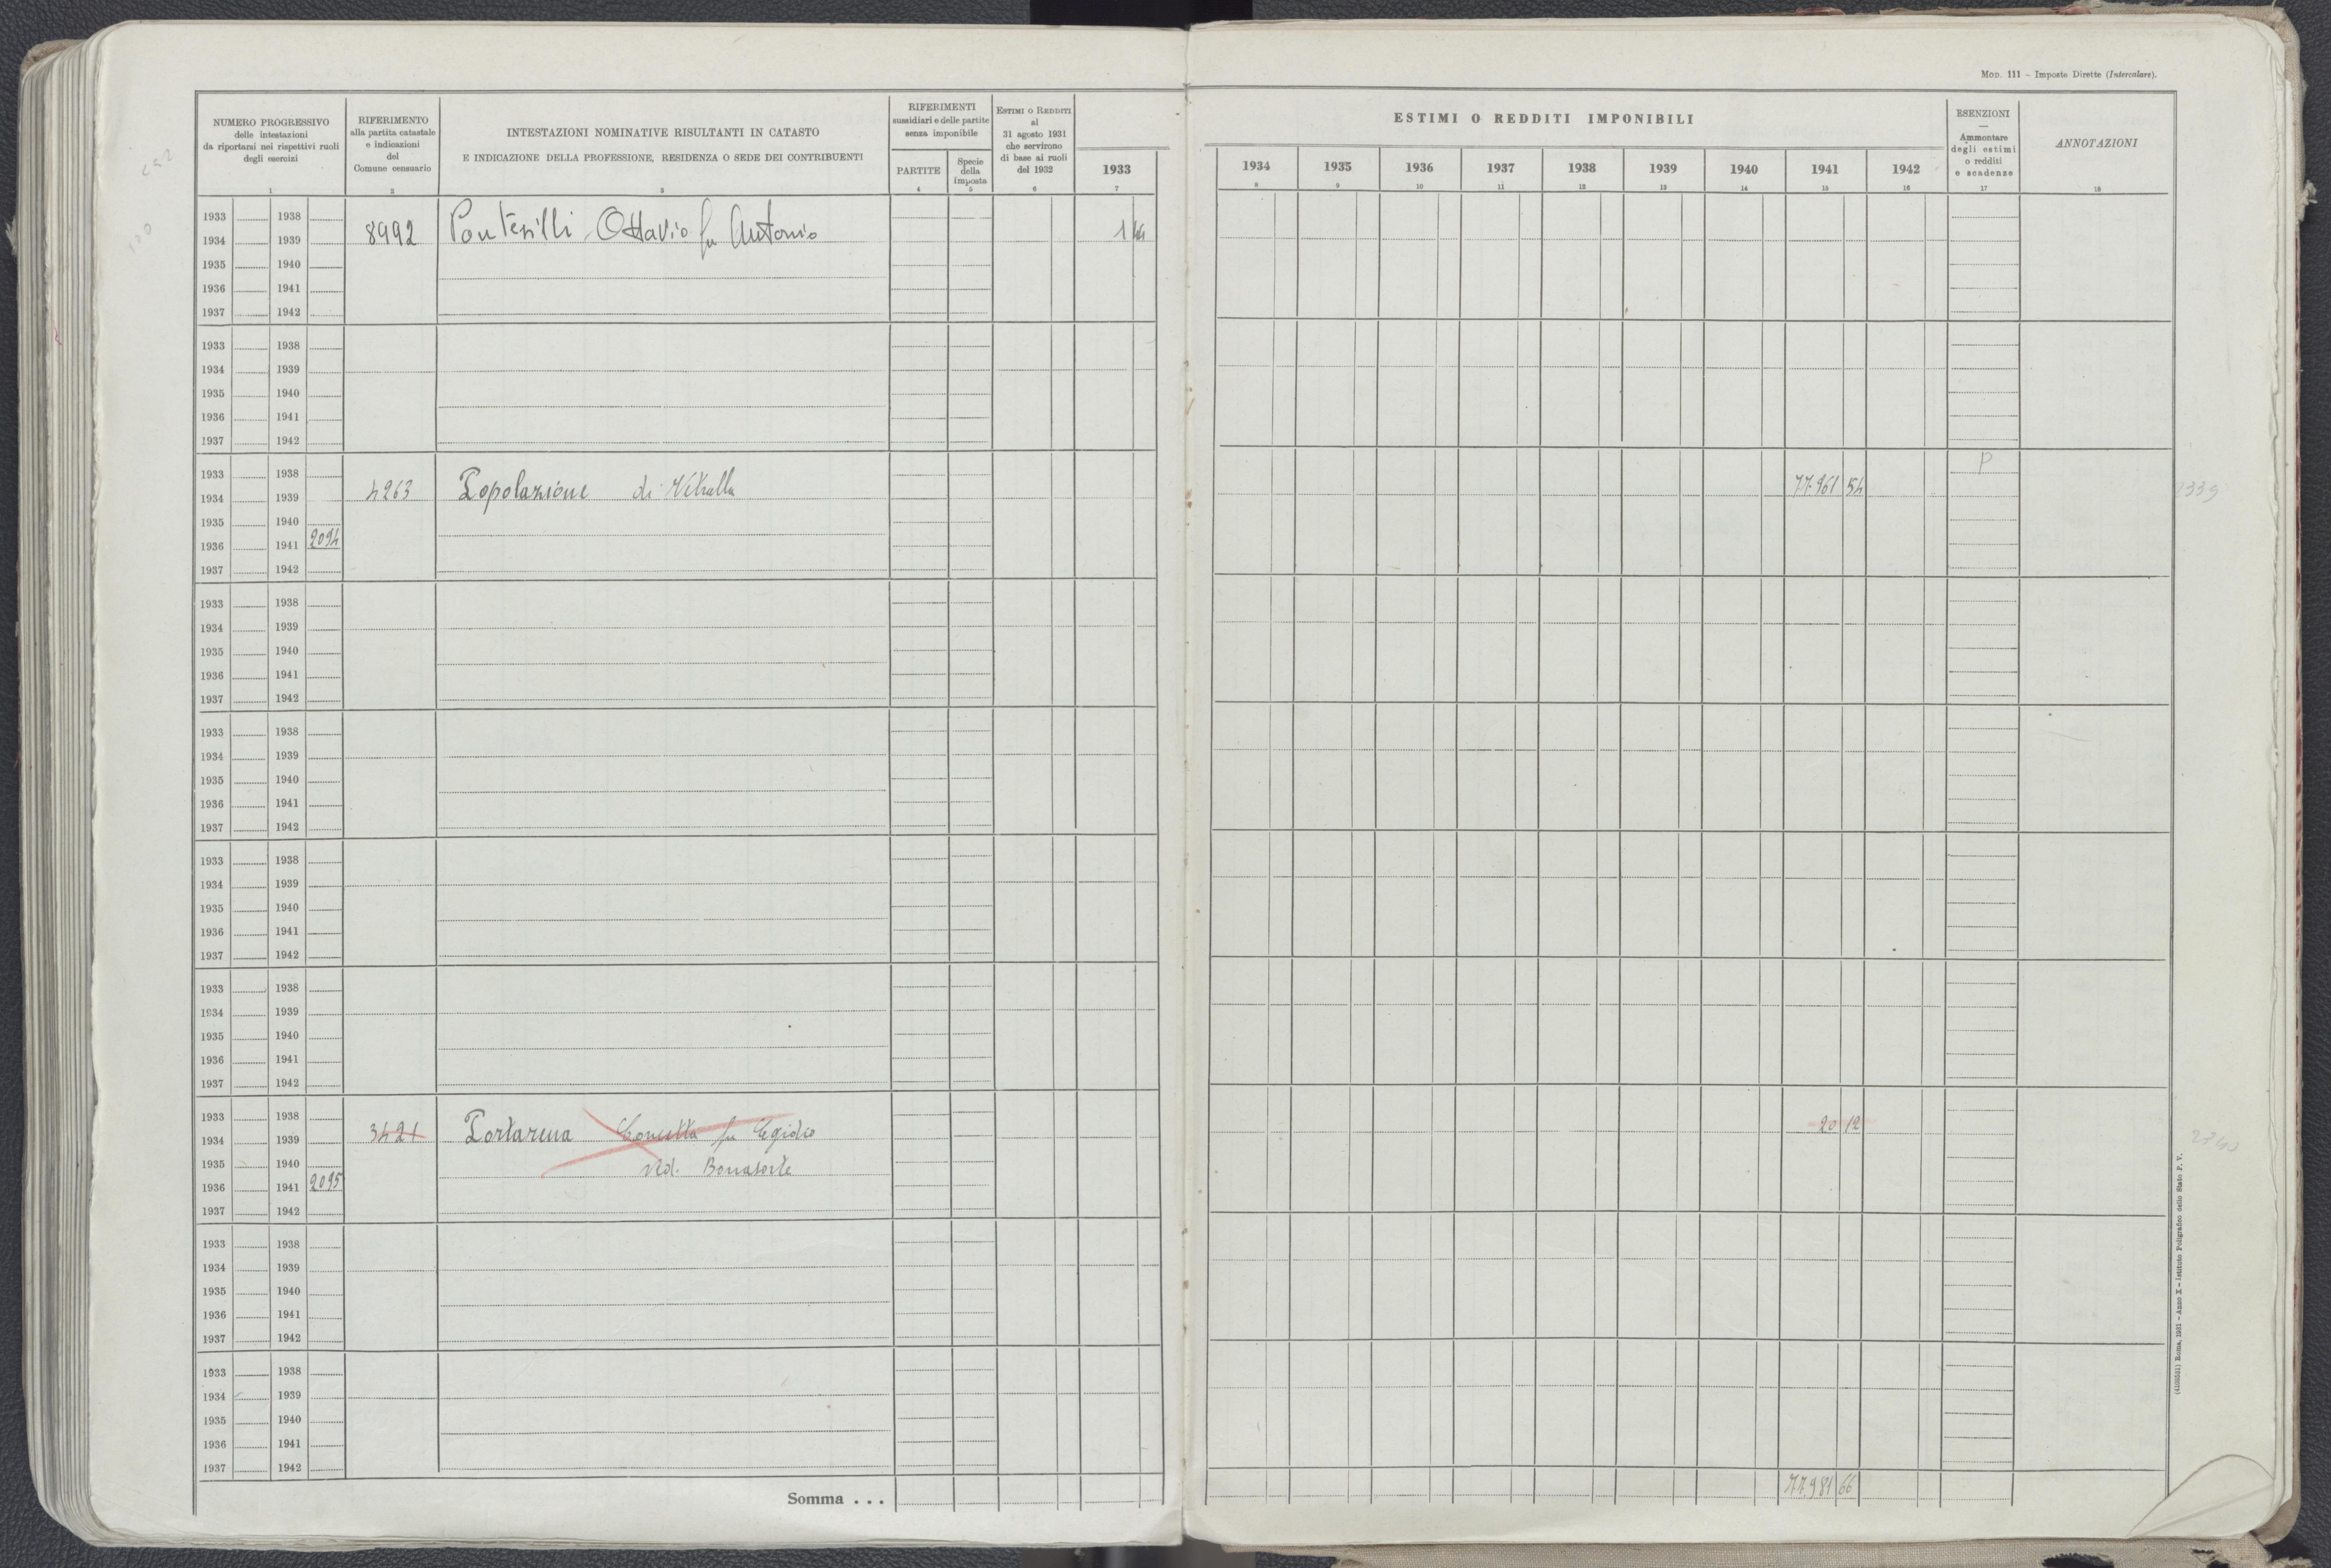 Mod. 111 – Imposte Dirette (Intercalare).
NUMERO PROGRESSIVO
delle intestazioni
da riportarsi nei rispettivi ruoli
degli esercizi
1
RIFERIMENTO
alla partita catastale
e indicazioni
del
Comune censuario
2
INTESTAZIONI NOMINATIVE RISULTANTI IN CATASTO
E INDICAZIONE DELLA PROFESSIONE, RESIDENZA O SEDE DEI CONTRIBUENTI
3
RIFERIMENTI
sussidiari e delle partite
senza imponibile
PARTITE
4
Specie
della
imposta
5
Estimi o Redditi
al
31 agosto 1931
che servirono
di base ai ruoli
del 1932
6
1933
7
ESTIMI O REDDITI IMPONIBILI
1934 1935 1936 1937 1938 1939 1940 1941 1942
8 9 10 11 12 13 14 15 16
ESENZIONI
—
Ammontare
degli estimi
o redditi
e scadenze
17
ANNOTAZIONI
18
1933 1938
1934 1939 8992 Ottavio fu Antonio 1 44
1935 1940
1936 1941
1937 1942
1933 1938
1934 1939
1935 1940
1936 1941
1937 1942
1933 1938 P
1934 1939 4263 Popolazione di Vetralla 77.961 54 2339
1935 1940
1936 1941 2094
1937 1942
1933 1938
1934 1939
1935 1940
1936 1941
1937 1942
1933 1938
1934 1939
1935 1940
1936 1941
1937 1942
1933 1938
1934 1939
1935 1940
1936 1941
1937 1942
1933 1938
1934 1939
1935 1940
1936 1941
1937 1942
1933 1938
1934 1939 3421 Portarena Concetta fu Egidio 20 12 2340
1935 1940 Ved. Bonasorte
1936 1941 2095
1937 1942
1933 1938
1934 1939
1935 1940
1936 1941
1937 1942
1933 1938
1934 1939
1935 1940
1936 1941
1937 1942
Somma . . . 77.981 66
Roma, 1931 – Anno X – Istituto Poligrafico dello Stato P. V.